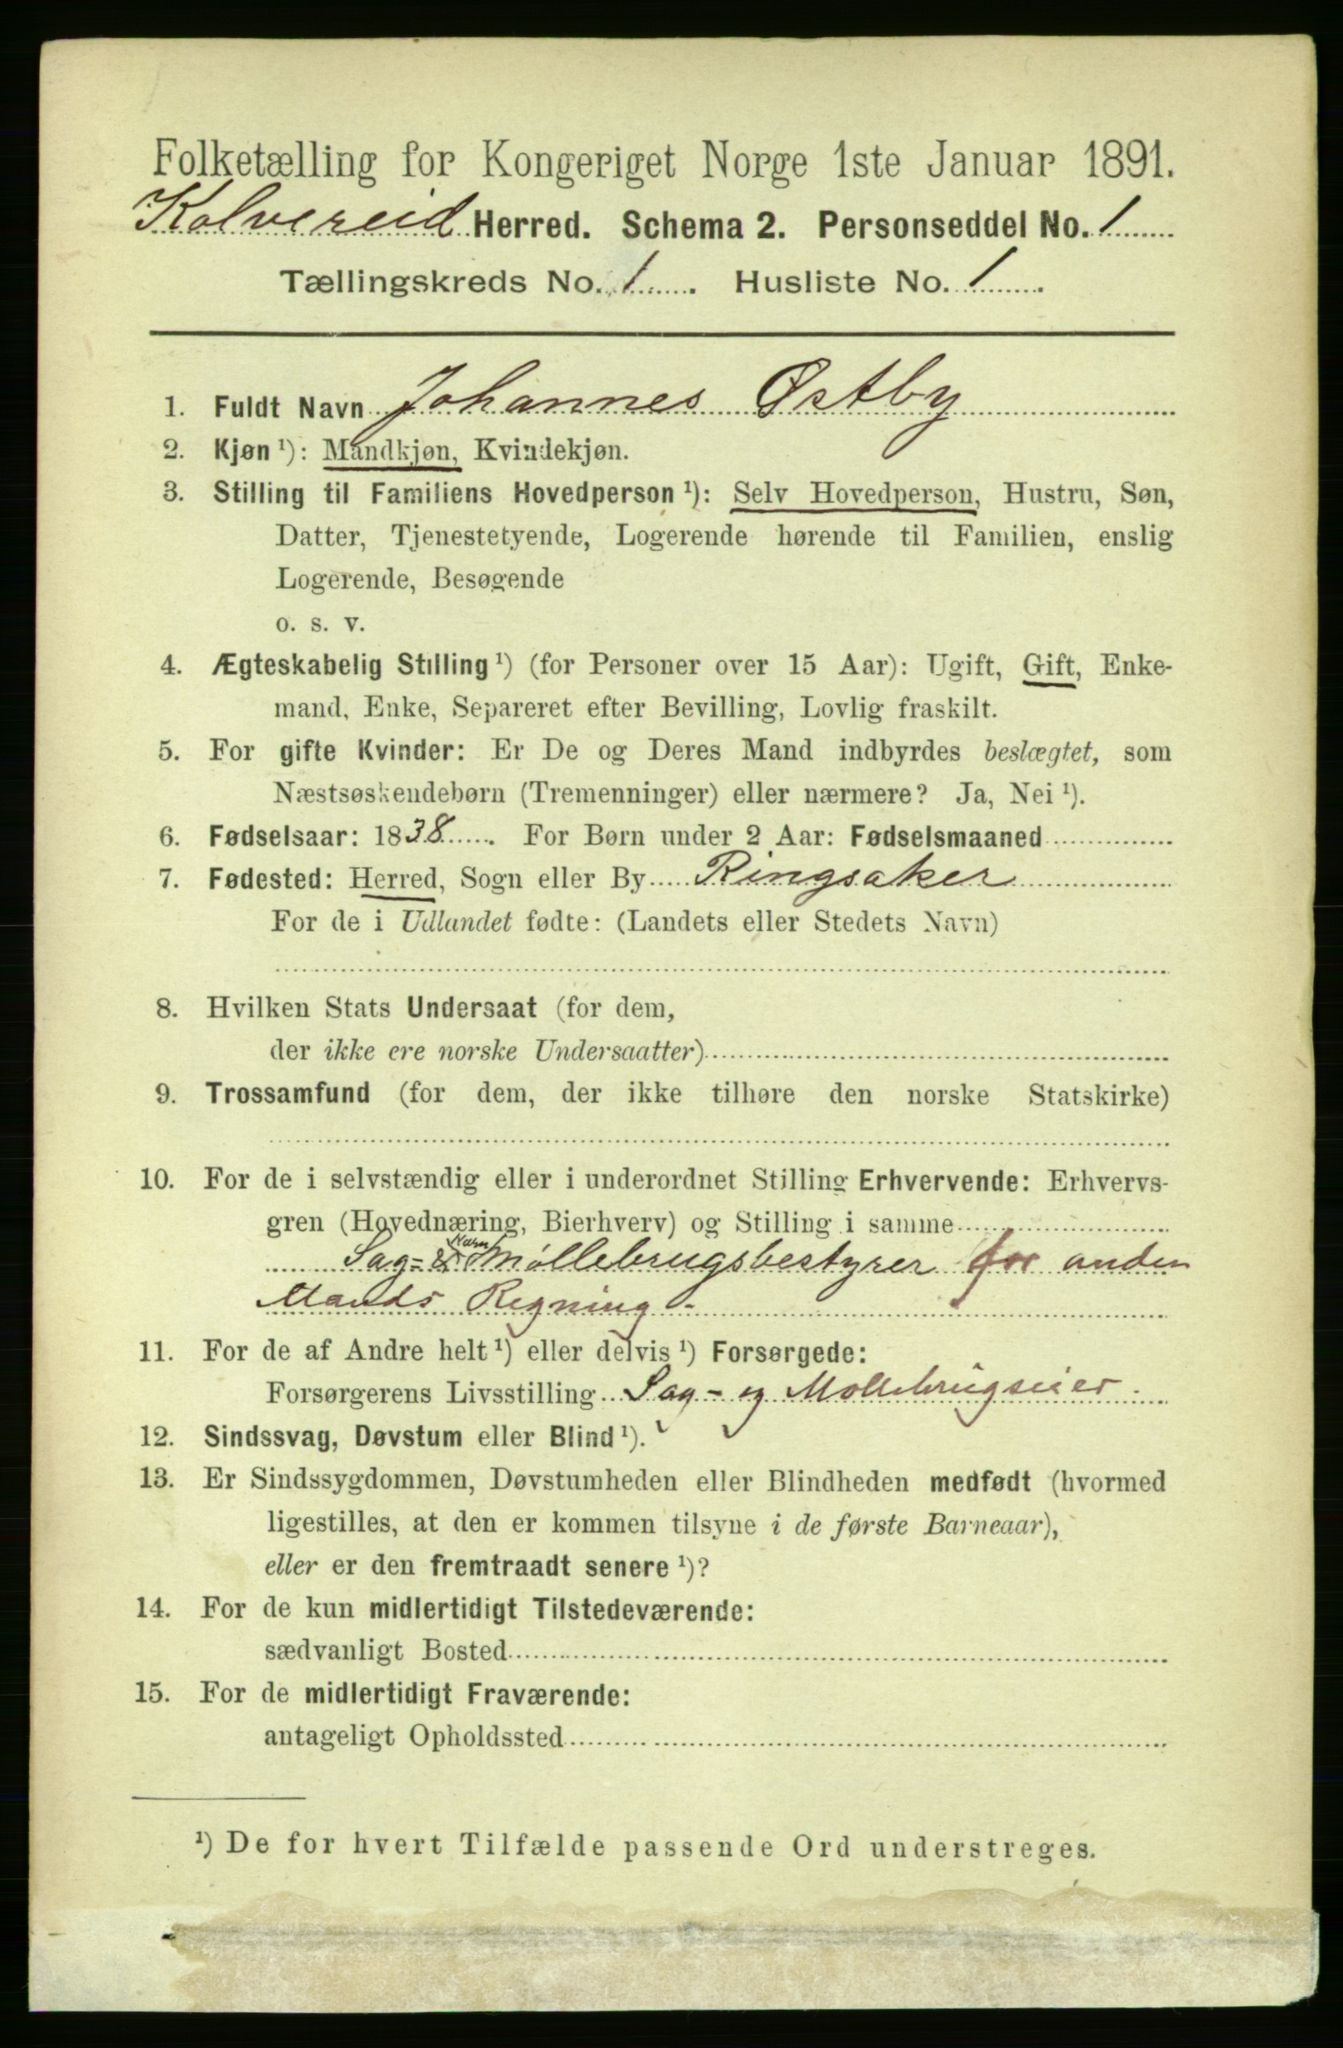 Folketælling for Kongeriget Norge 1ste Januar 1891.
Kolvereid Herred. Schema 2. Personseddel No. 1
Tællingskreds No. 1. Husliste No. 1.
1. Fuldt Navn Johannes Østby
2. Kjøn ¹): Mandkjøn, Kvindekjøn.
3. Stilling til Familiens Hovedperson ¹): Selv Hovedperson, Hustru, Søn,
Datter, Tjenestetyende, Logerende hørende til Familien, enslig
Logerende, Besøgende
o. s. v.
4. Ægteskabelig Stilling ¹) (for Personer over 15 Aar): Ugift, Gift, Enke-
mand, Enke, Separeret efter Bevilling, Lovlig fraskilt.
5. For gifte Kvinder: Er De og Deres Mand indbyrdes beslægtet, som
Næstsøskendebørn (Tremenninger) eller nærmere? Ja, Nei ¹).
6. Fødselsaar: 1838. For Børn under 2 Aar: Fødselsmaaned
7. Fødested: Herred, Sogn eller By Ringsaker
For de i Udlandet fødte: (Landets eller Stedets Navn)
8. Hvilken Stats Undersaat (for dem,
der ikke ere norske Undersaatter)
9. Trossamfund (for dem, der ikke tilhøre den norske Statskirke)
10. For de i selvstændig eller i underordnet Stilling Erhvervende: Erhvervs-
gren (Hovednæring, Bierhverv) og Stilling i samme
Sag- & Møllebrugsbestyrer for anden
Mands Regning -
11. For de af Andre helt ¹) eller delvis ¹) Forsørgede:
Forsørgerens Livsstilling Sag- og Møllebrugseier.
12. Sindssvag, Døvstum eller Blind ¹).
13. Er Sindssygdommen, Døvstumheden eller Blindheden medfødt (hvormed
ligestilles, at den er kommen tilsyne i de første Barneaar),
eller er den fremtraadt senere ¹)?
14. For de kun midlertidigt Tilstedeværende:
sædvanligt Bosted
15. For de midlertidigt Fraværende:
antageligt Opholdssted
¹) De for hvert Tilfælde passende Ord understreges.